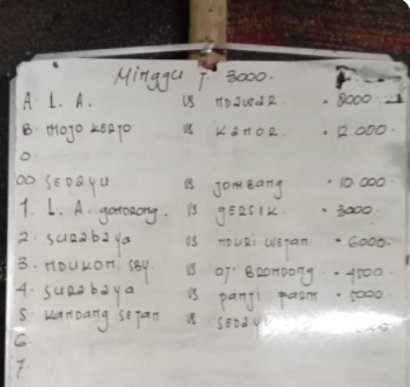 Minggu T. 3000.
A. L. A. VS MDAWAR. = 8000
B. MOJO KERTO VS KAMOR. = 12.000
O.
OO SEDAYU VS JOMBANG = 10.000
1. L. A. GONDRONG. VS GERSIK = 3000
2. SURABAYA VS MOURI WETAN = 6000
3. MDUKOH SBY. VS BRONDONG = 4500
4. SURABAYA VS PANJI PATM = 5000
5. KANDANG SETAN VS
6
7.